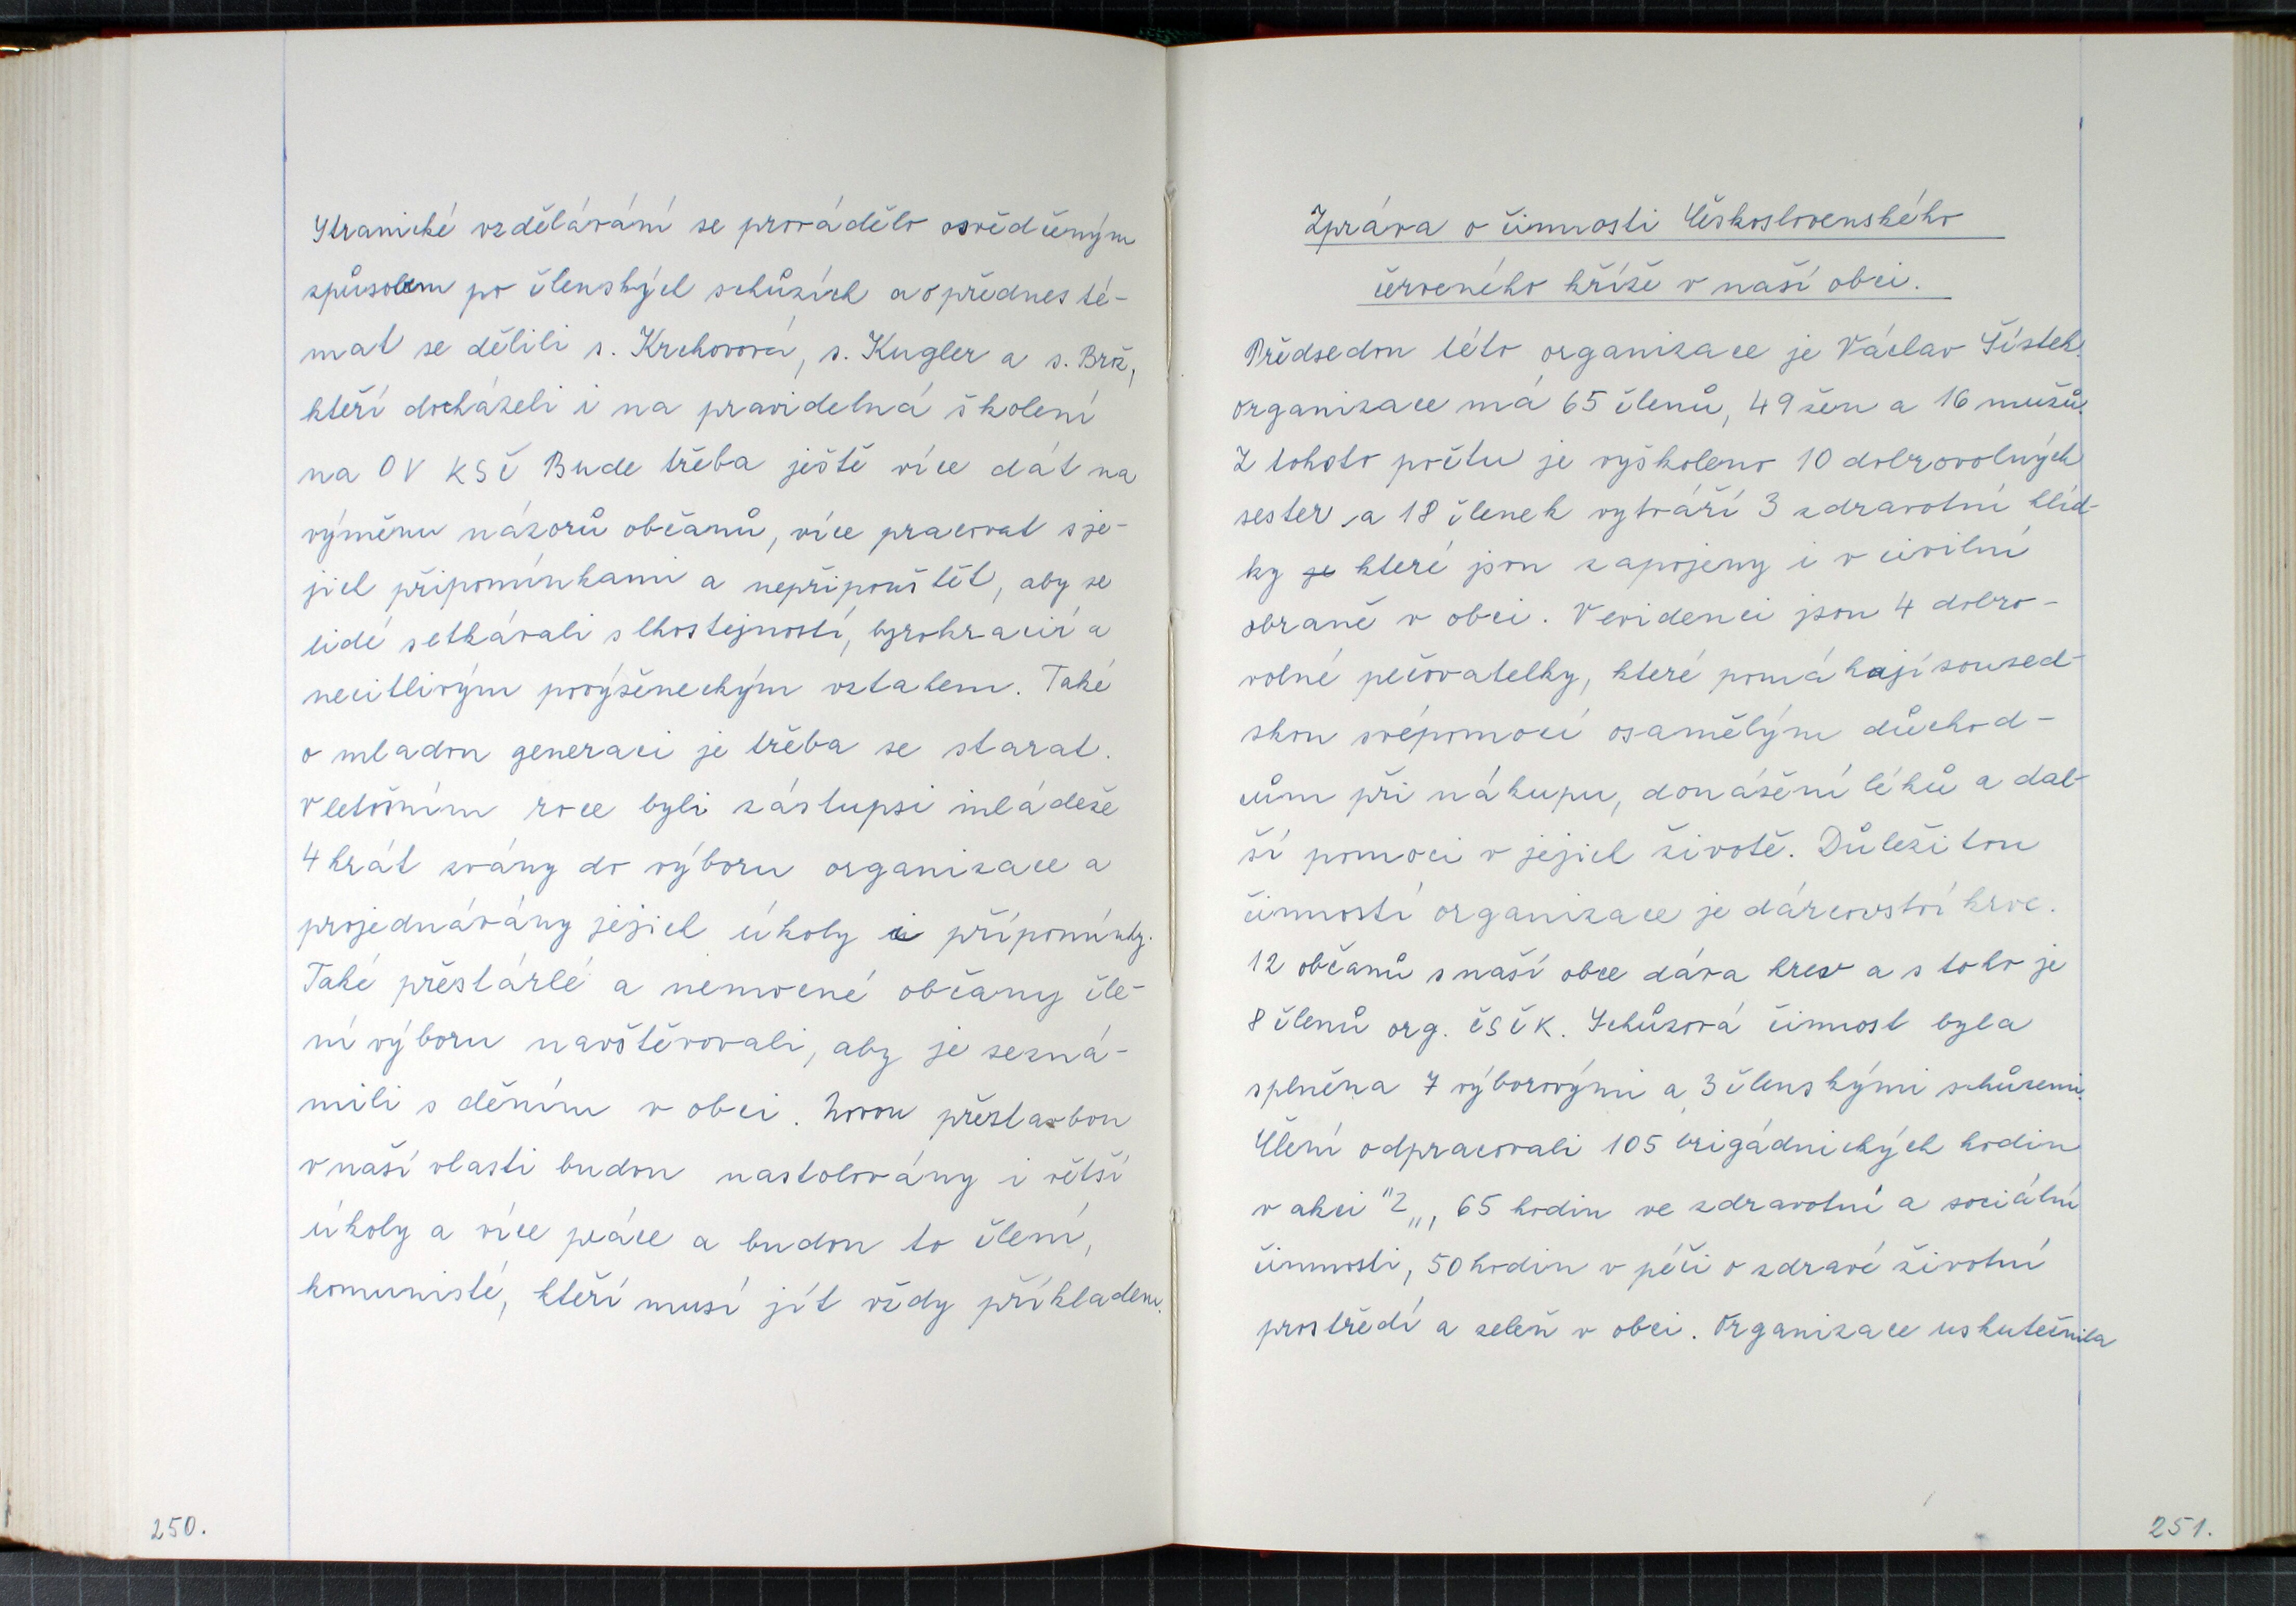 Stranické vzdělávání se provádělo osvědčeným
způsobem po členských schůzích a o přednes té-
mat se dělili s. Krchovová, s. Kugler a s. Brož,
kteří docházeli i na pravidelná školení
na OV KSČ Bude třeba ještě více dát na
výměnu názorů občanů, více pracovat s je-
jich připomínkami a nepřipouštět, aby se
lidé setkávali s lhostejností, byrokracií a
necitlivým povýšeneckým vztahem. Také
o mladou generaci je třeba se starat.
V letošním roce byli zástupsi mládeže
4 krát zvány do výboru organizace a
projednávány jejich úkoly i přípomínky.
Také přestárlé a nemocné občany čle-
ní výboru navštěvovali, aby je sezná-
mili s děním v obci. Novou přestavbou
v naší vlasti budou nastolovány i větší
úkoly a více práce a budou to člení,
komunisté, kteří musí jít vždy příkladem.
250.
Zpráva o činnosti Československého
červeného kříže v naší obci.
Předsedou této organizace je Václav Šístek.
Organizace má 65 členů, 49 žen a 16 mužů.
Z tohoto počtu je vyškoleno 10 dobrovolných
sester a 18 členek vytváří 3 zdravotní hlíd-
ky je které jsou zapojeny i v civilní
obraně v obci. V evidenci jsou 4 dobro-
volné pečovatelky, které pomáhají soused-
skou svépomocí osamělým důchod-
cům při nákupu, donášení léků a dal-
ší pomoci v jejich životě. Důležitou
činností organizace je dárcovství krve.
12 občanů s naší obce dává krev a s toho je
8 členů org. ČSČK. Schůzová činnost byla
splněna 7 výborovými a 3 členskými schůzemi.
Člení odpracovali 105 brigádnických hodin
v akci "Z„, 65 hodin ve zdravotní a sociální
činnosti, 50 hodin v péči o zdravé životní
prostředí a zeleň v obci. Organizace uskutečnila
251.